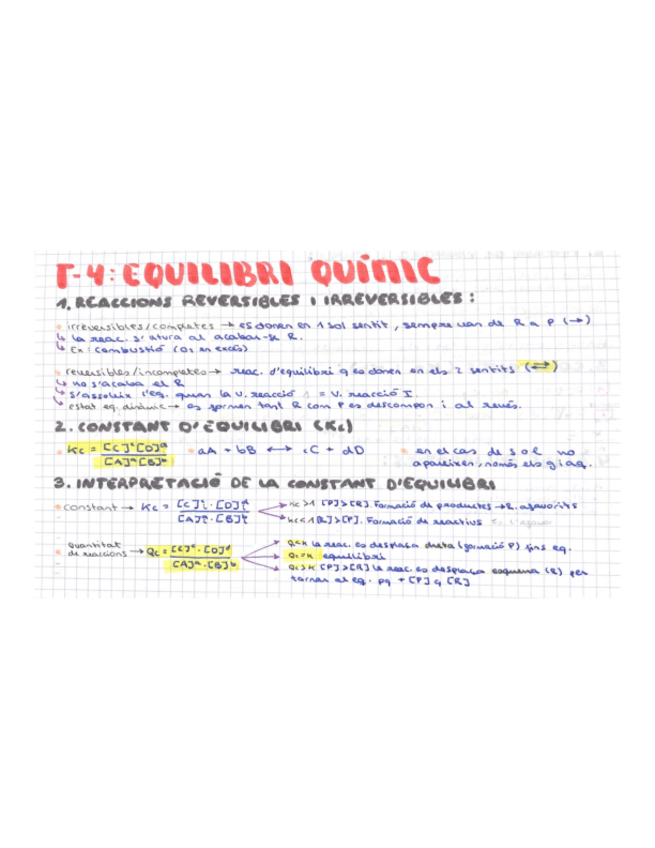 T-4: EQUILIBRI QUÍMIC
1. REACCIONS REVERSIBLES I IRREVERSIBLES:
irreversibles/completes → es donen en 1 sol sentit, sempre van de R a P (→)
↳ La reac. s'atura al acabar-se R.
↳ Ex: combustió (O₂ en excés)
reversibles/incompletes → reac. d'equilibri q es donen en els 2 sentits (⇄)
↳ no s'acaba el R
↳ s'assoleix l'eq. quan la v. reacció 1 = v. reacció I.
↳ estat eq. dinàmic → es formen tant R com P es descompon i al revés.
2. CONSTANT D'EQUILIBRI (Kc)
Kc = [C]ᶜ[D]ᵈ / [A]ᵃ[B]ᵇ aA + bB ⟷ cC + dD en el cas de s o l no
apareixen, només els g i aq.
3. INTERPRETACIÓ DE LA CONSTANT D'EQUILIBRI
constant → Kc = [C]ᶜ·[D]ᵈ / [A]ᵃ·[B]ᵇ
Kc>1 [P]>[R]. Formació de productes → R. afavorits
Kc<1 [R]>[P]. Formació de reactius
quantitat
de reaccions → Qc = [C]ᶜ·[D]ᵈ / [A]ᵃ·[B]ᵇ
Q<K la reac. es desplaça dreta (formació P) fins eq.
Qc=K equilibri
Qc>K [P]>[R] la reac. es desplaça esquerra (R) per
tornar al eq. pq + [P] q [R]